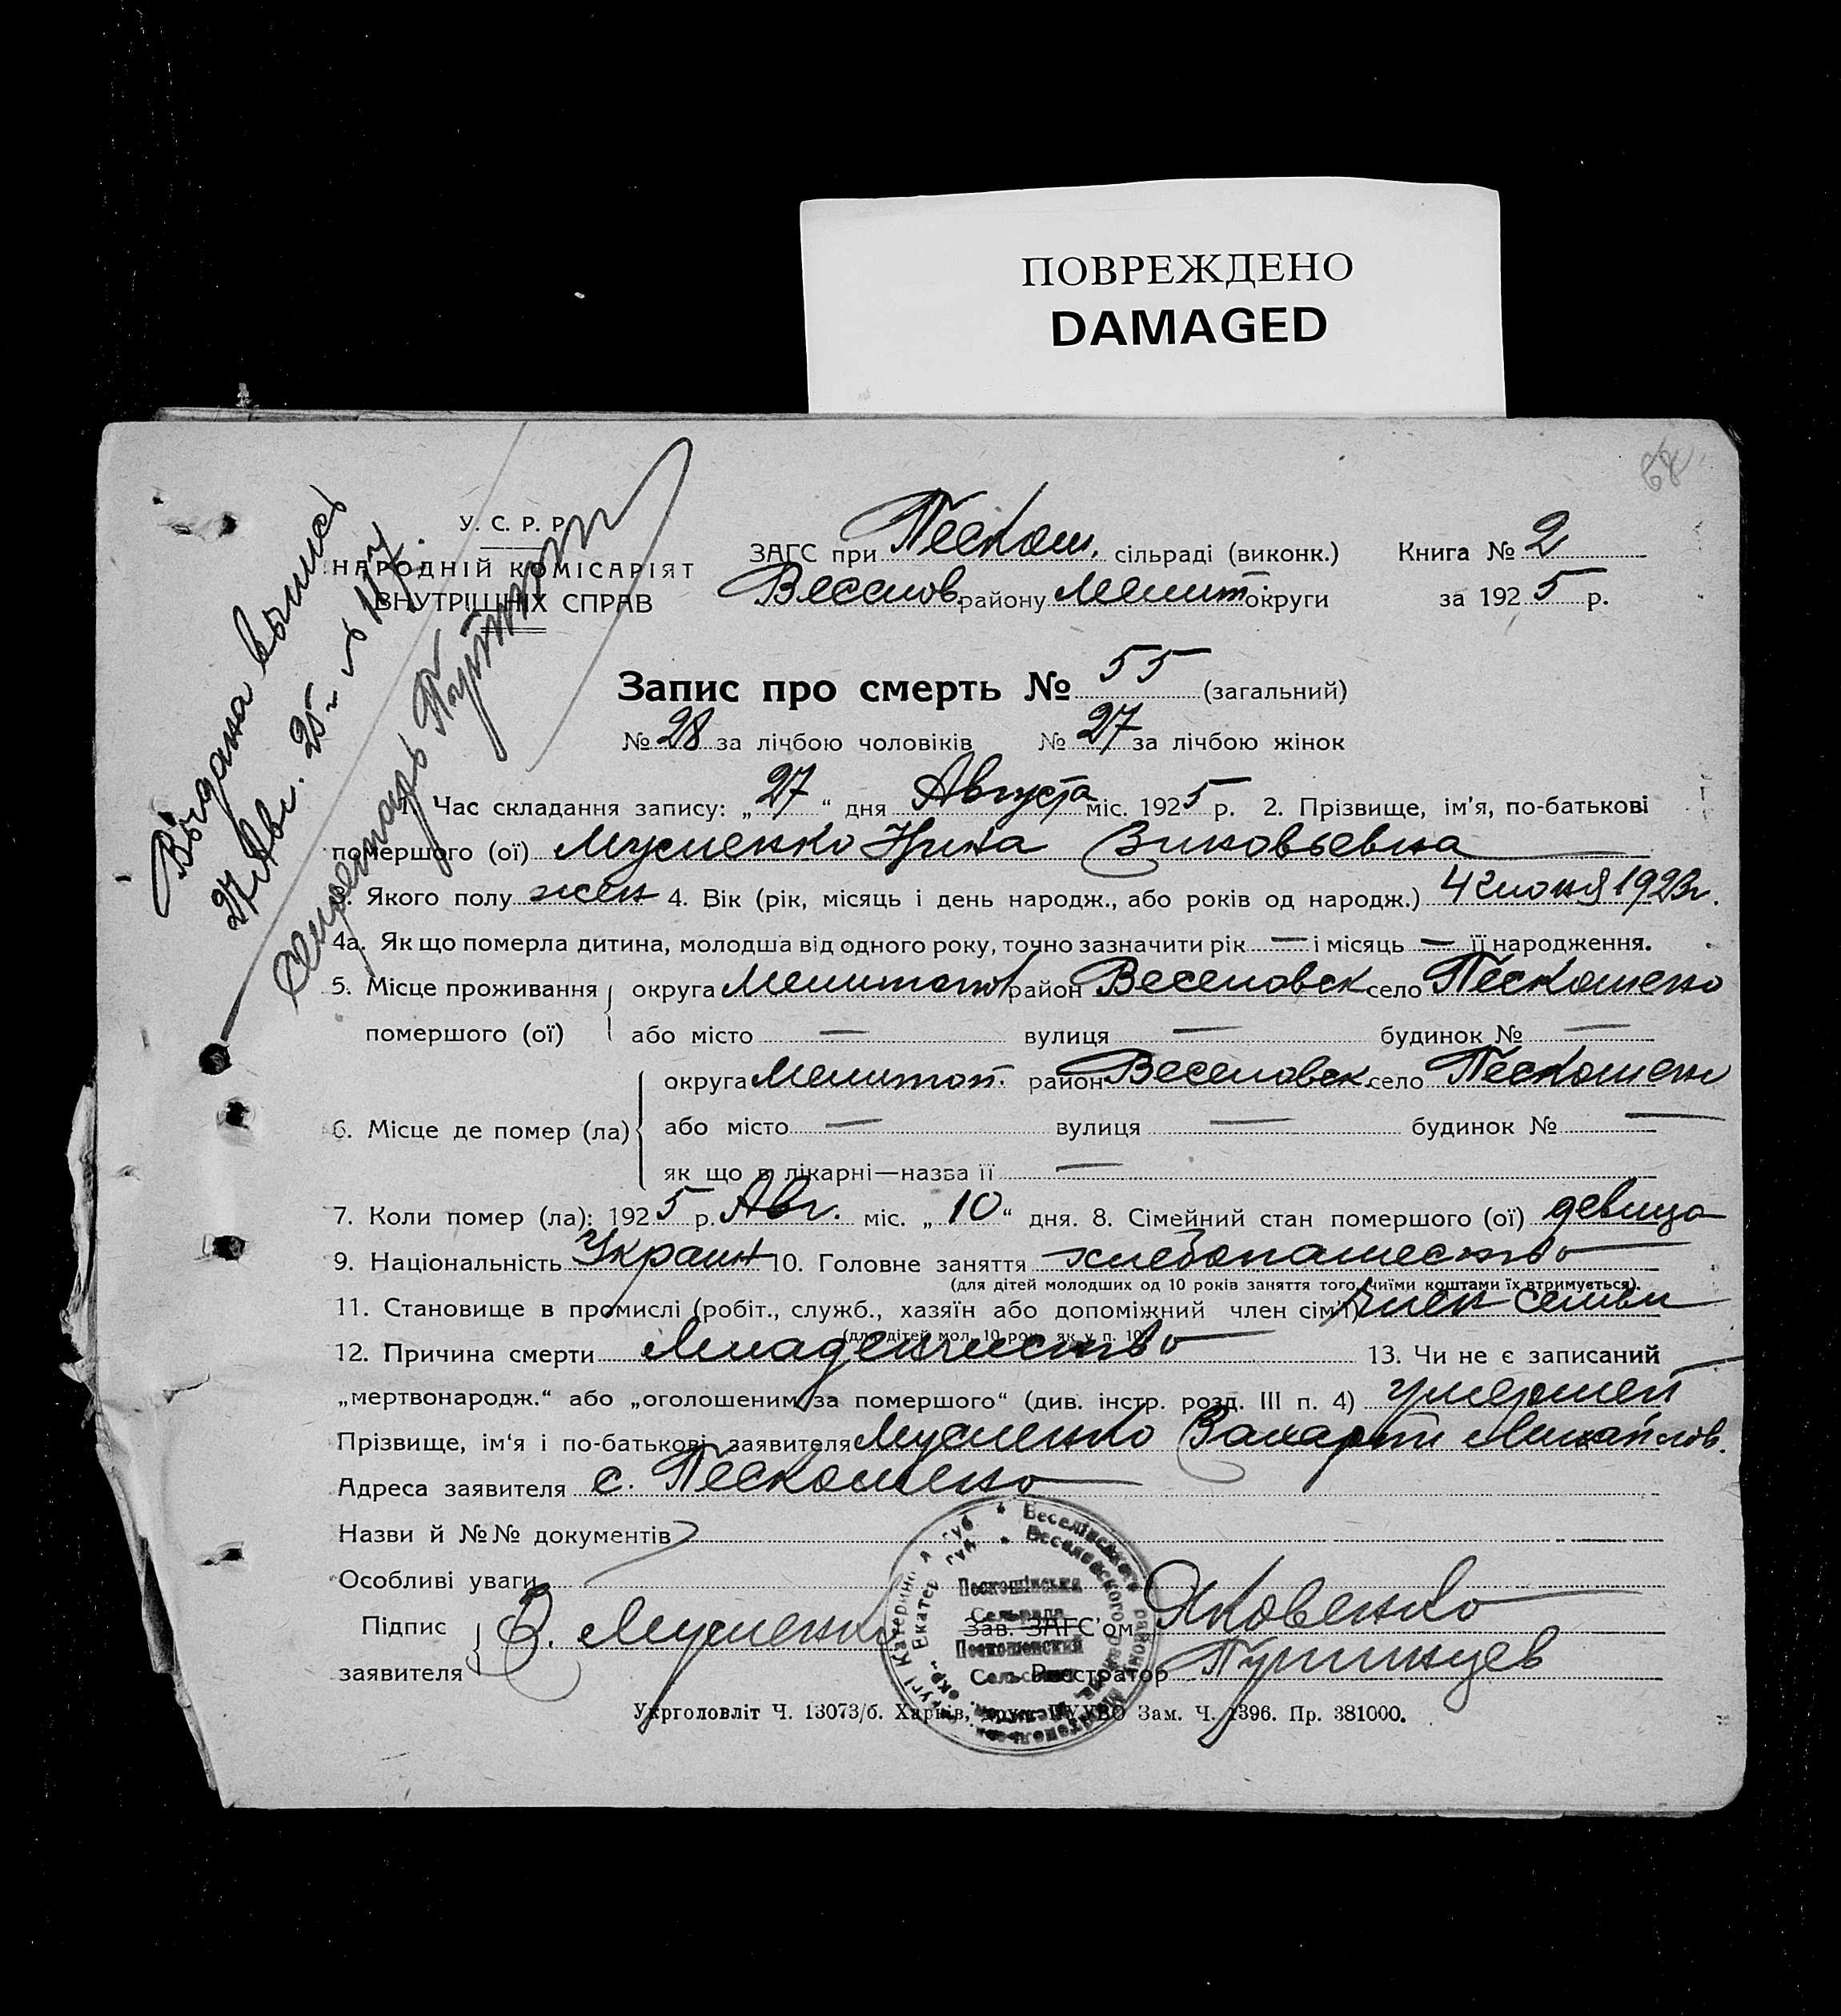 ПОВРЕЖДЕНО
DAMAGED
68
У. С. Р. Р.
НАРОДНІЙ КОМІСАРІЯТ
ВНУТРІШНІХ СПРАВ
Выдана выпись
27 Авг. 25 г.
Секретарь
ЗАГС при Пескош. сільраді (виконк.) Книга № 2
Веселов. району Мелит. округи за 1925 р.
Запис про смерть № 55 (загальний)
№ 28 за лічбою чоловіків № 27 за лічбою жінок
Час складання запису: „27“ дня Августа міс. 1925 р. 2. Прізвище, ім'я, по-батькові
помершого (ої) Мусиенко Нина Зиновьевна
3. Якого полу жен 4. Вік (рік, місяць і день народж., або років од народж.) 4 июня 1923 г.
4а. Як що померла дитина, молодша від одного року, точно зазначити рік — і місяць — її народження.
5. Місце проживання округа Мелитопол район Веселовск село Пескошено
помершого (ої) або місто — вулиця — будинок № —
округа Мелитоп. район Веселовск. село Пескошено
6. Місце де помер (ла) або місто — вулиця — будинок № —
як що в лікарні—назва її —
7. Коли помер (ла): 1925 р. Авг. міс. „10“ дня. 8. Сімейний стан помершого (ої) девица
9. Національність Украин 10. Головне заняття хлебопашество
(для дітей молодших од 10 років заняття того, чиїми коштами їх втримується).
11. Становище в промислі (робіт., служб., хазяїн або допоміжний член сім'ї) член семьи
(для дітей мол. 10 рок. як у п. 10)
12. Причина смерти Младенчество 13. Чи не є записаний
„мертвонародж.“ або „оголошеним за помершого“ (див. інстр. розд. III п. 4) умершей
Прізвище, ім'я і по-батькові заявителя Мусиенко Захарий Михайлов.
Адреса заявителя с. Пескошено
Назви й №№ документів
Особливі уваги
Підпис З. Мусиенко Зав. ЗАГС'ом Яковенко
заявителя Реєстратор
Укрголовліт Ч. 13073/б. Харків, друк. ВУУВО Зам. Ч. 1396. Пр. 381000.